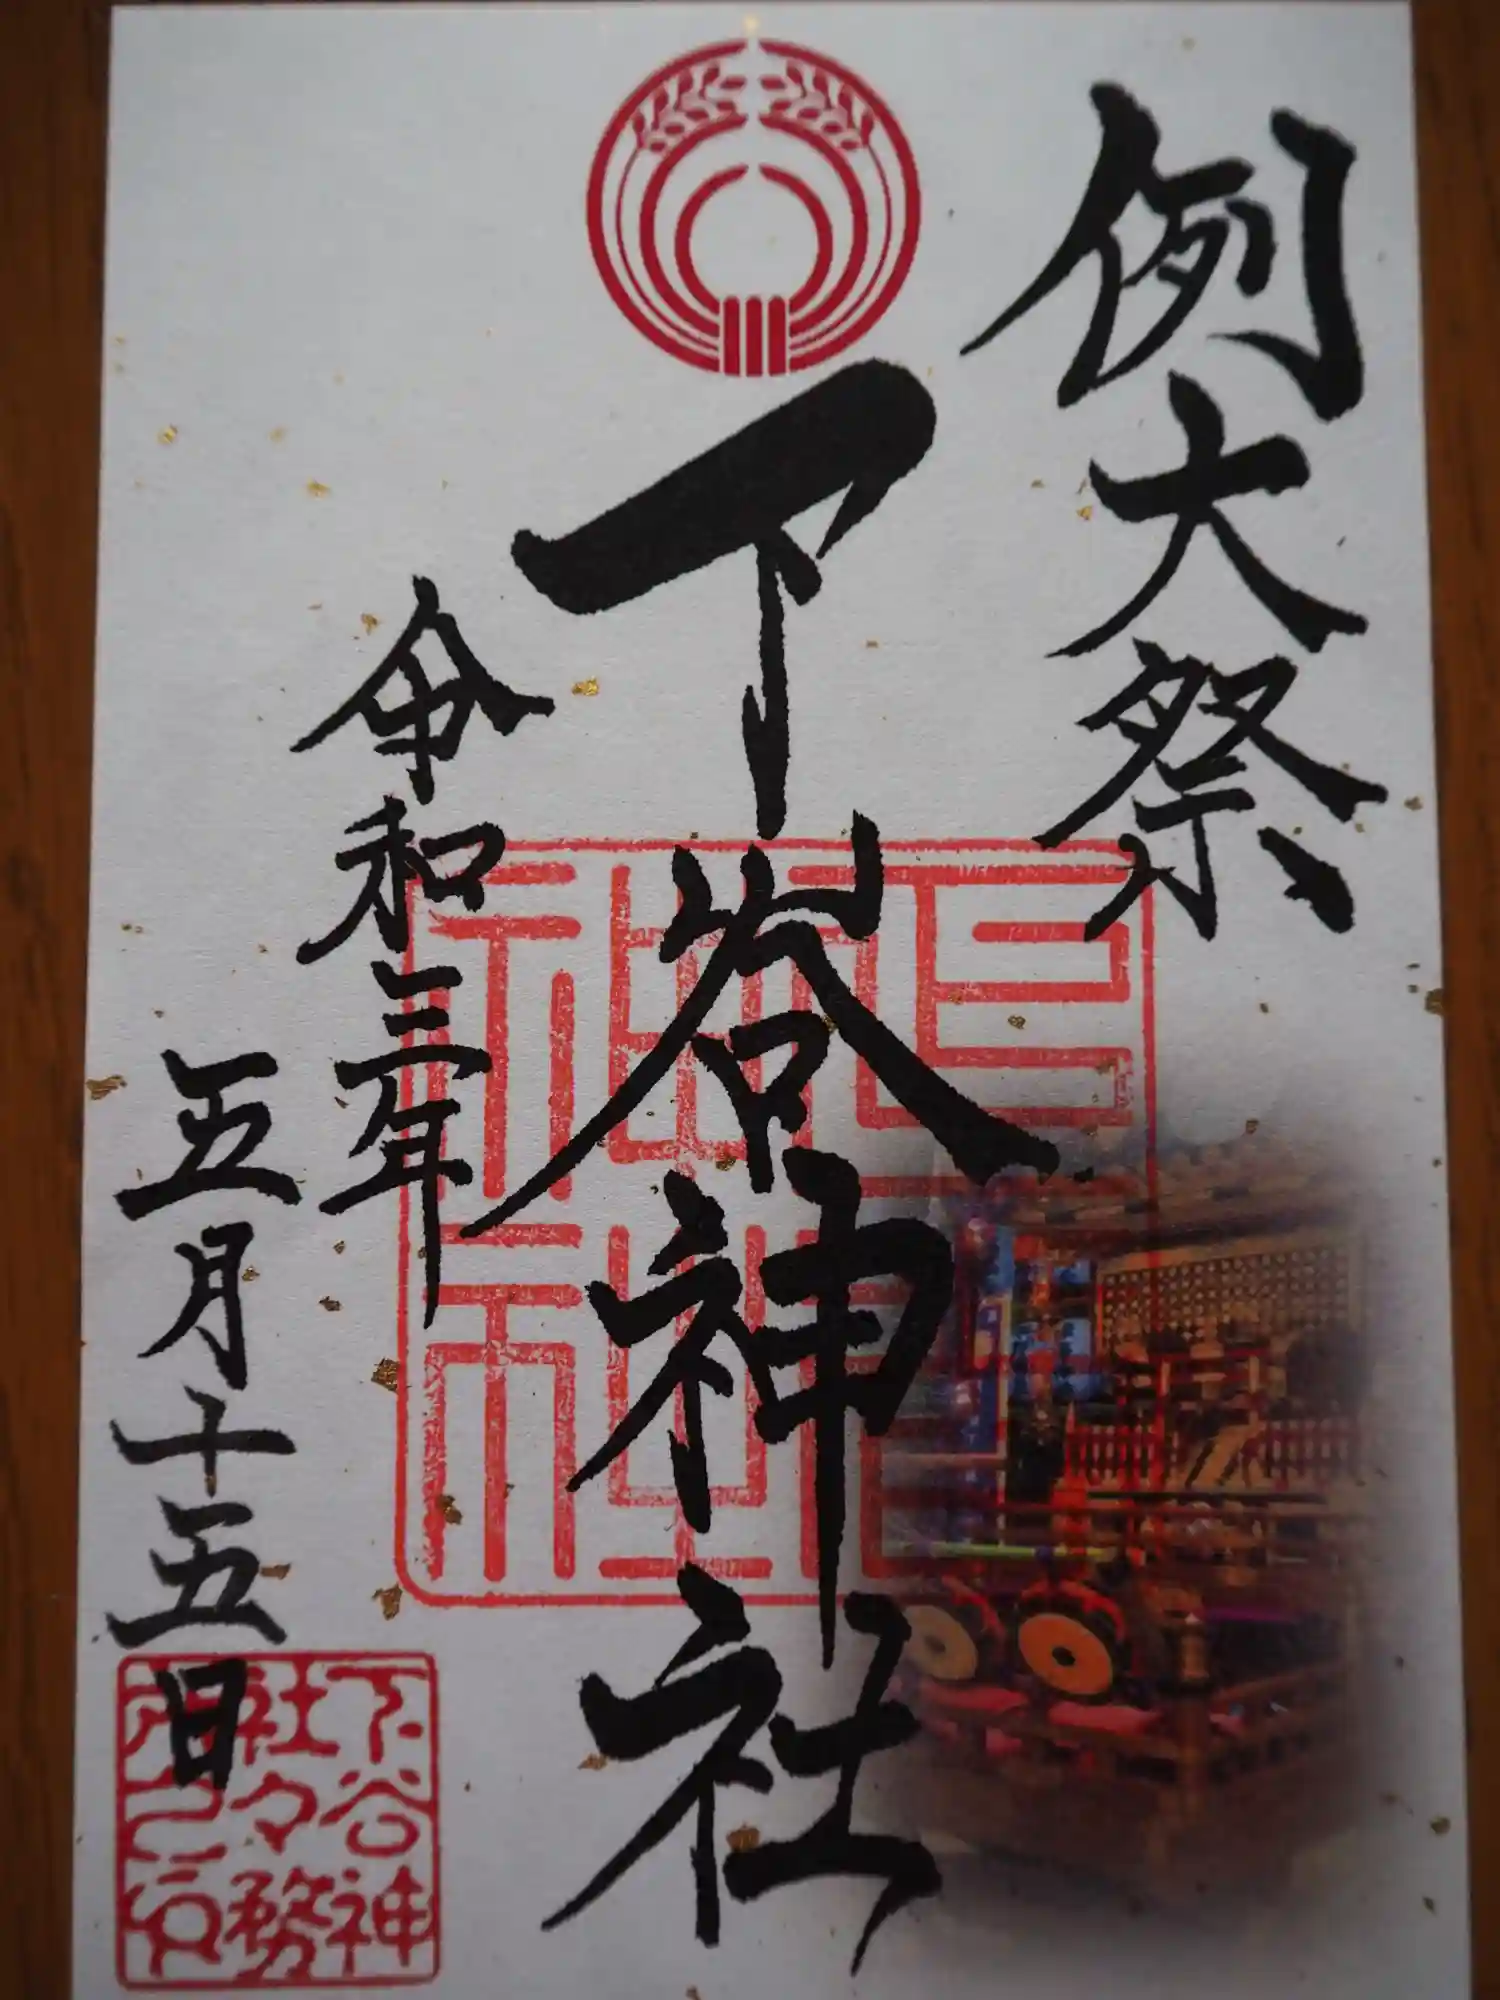 例大祭
下谷神社
令和三年
五月十五日
下谷神社
下谷神
社々務
所之印